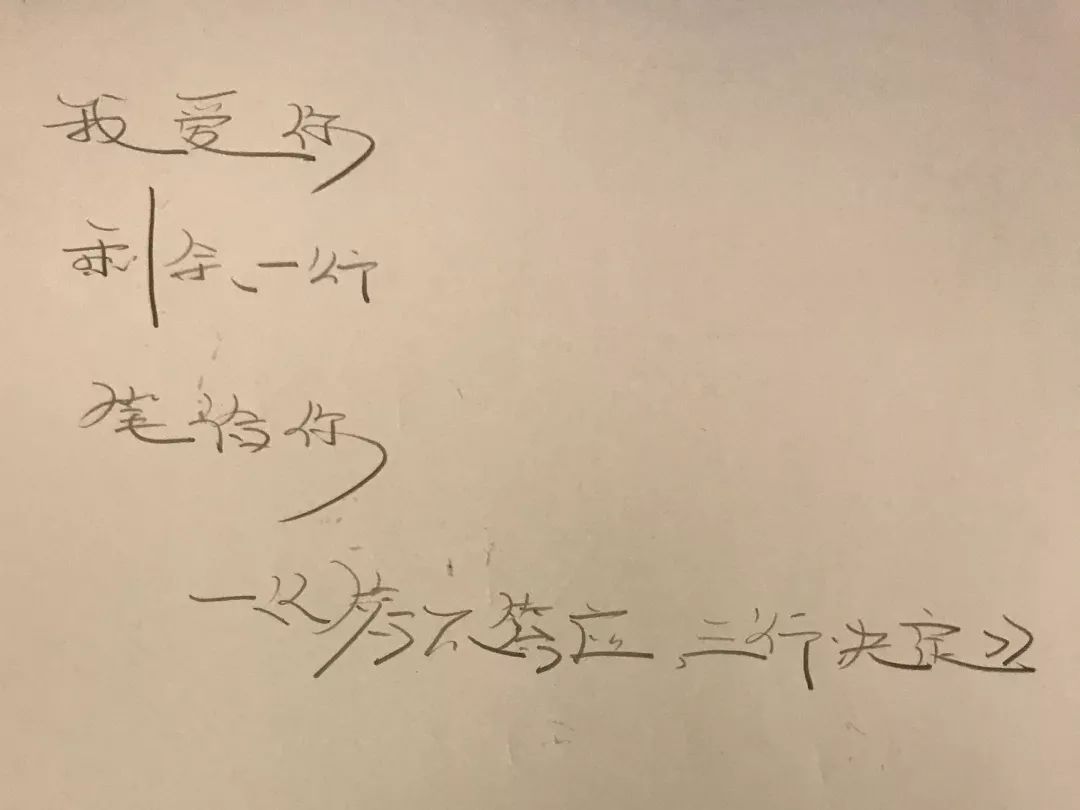 我爱你
剩余、一行
笔给你
一以答不答应、三行决定》